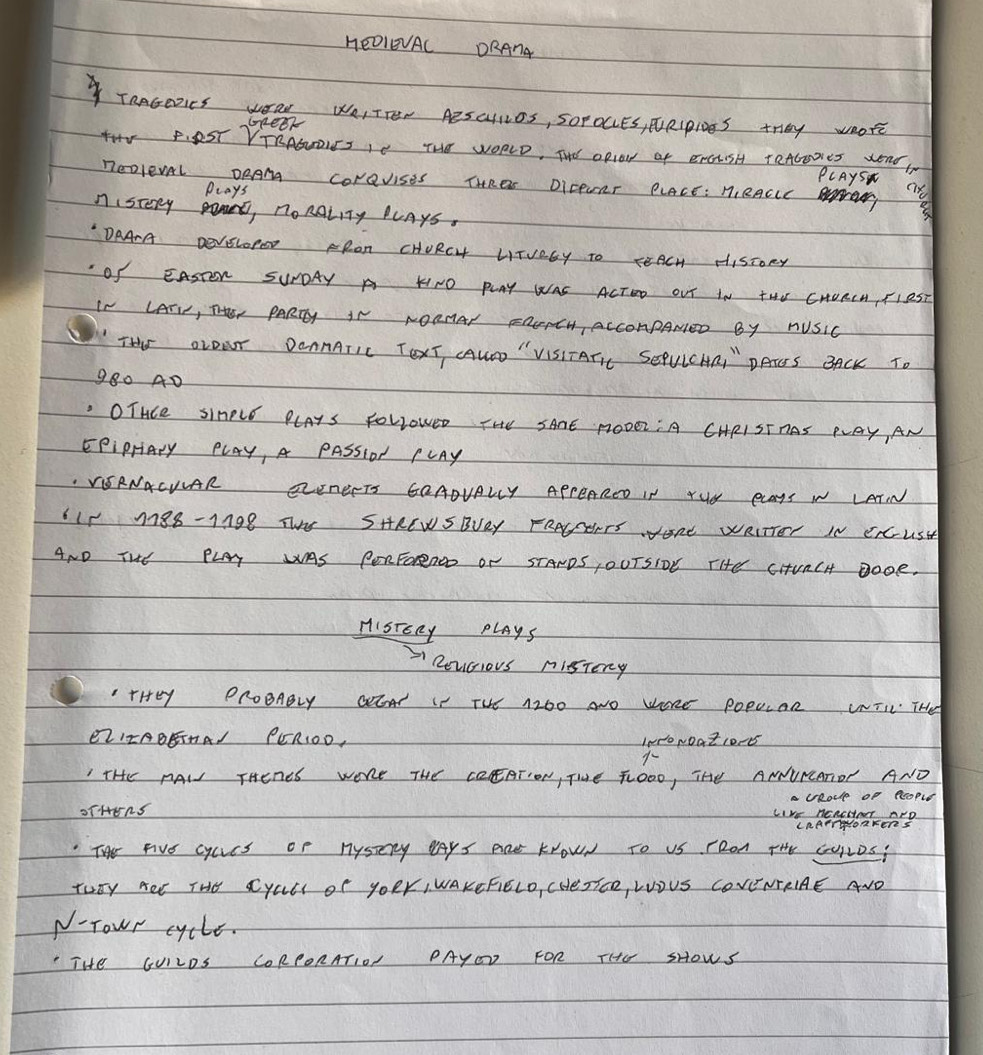 MEDIEVAL DRAMA
TRAGEDIES WERE WRITTEN AESCHILOS, SOPOCLES, EURIPIDES THEY WROTE
GREEK
THE FIRST TRAGEDIES IN THE WORLD. THE ORIGN OF ENGLISH TRAGEDIES WERE IN
CHURCH
MEDIEVAL DRAMA THREE PLACE: MIRACLE PLAYS
MISTERY Plays, MORALITY PLAYS.
• DRAMA DEVELOPED FROM CHURCH LITURGY TO TEACH HISTORY
• Of EASTER SUNDAY A KIND PLAY WAS ACTED OUT IN THE CHURCH, FIRST
IN LATIN, THEN PARTLY IN NORMAN FRENCH, ACCOMPANIED BY MUSIC
• THE OLDEST DRAMATIC TEXT, CALLED "VISITATIC SEPULCHRI" DATES BACK TO
980 AD
• OTHER SIMPLE PLAYS FOLLOWED THE SAME MODEL: A CHRISTMAS PLAY, AN
EPIPHANY PLAY, A PASSION PLAY
• VERNACULAR ELEMENTS GRADUALLY APPEARED IN THE PLAYS IN LATIN
• IN 1188-1198 THE SHREWSBURY FRAGMENTS WERE WRITTEN IN ENGLISH
AND THE PLAY WAS PERFORMED ON STANDS, OUTSIDE THE CHURCH DOOR.
MISTERY PLAYS
RELIGIOUS MISTERY
• THEY PROBABLY BEGAN IN THE 1200 AND WERE POPULAR UNTIL THE
ELIZABETHAN PERIOD.
INNONDAZIONE
• THE MAIN THEMES WERE THE CREATION, THE FLOOD, THE ANNUNATION AND
OTHERS
A GROUP OF PEOPLE
LIKE MERCHANT AND
CRAFTWORKERS
• THE FIVE CYCLES OF MYSTERY PAYS ARE KNOWN TO US FROM THE GUILDS;
THEY ARE THE CYCLES OF YORK, WAKEFIELD, CHESTER, LUDUS COVENTRIAE AND
N-TOWN CYCLE.
• THE GUILDS CORPORATION PAYED FOR THE SHOWS